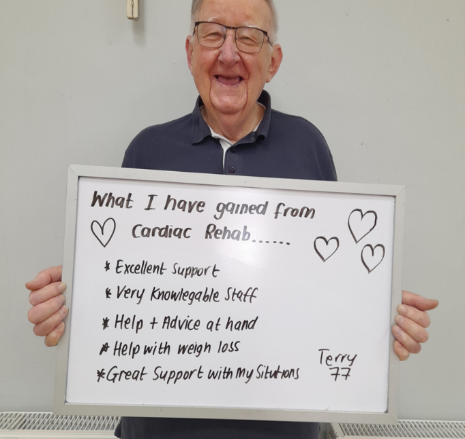 What I have gained from
Cardiac Rehab......
* Excellent Support
* Very Knowlegable Staff
* Help + Advice at hand
* Help with weigh loss
* Great Support with My Situtions
Terry
77